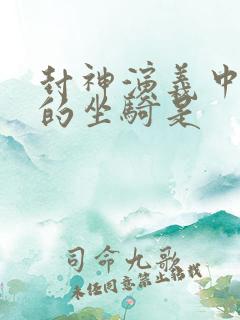 封神演義中
的坐騎是
司命九歌
未经同意禁止转载